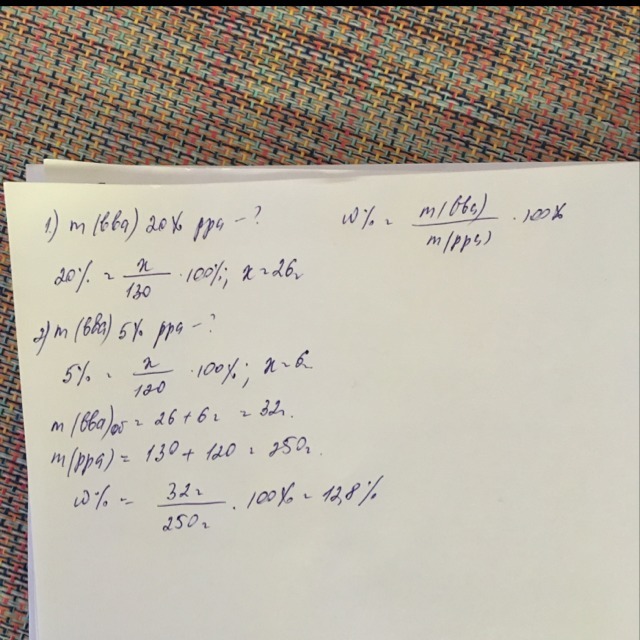 1) m(вва) 20% ppa - ?
w% = m(вва)/m(ppa) · 100%
20% = x/130 · 100%; x = 26г
2) m(вва) 5% ppa - ?
5% = x/120 · 100%; x = 6г
m(вва)об = 26 + 6г = 32г.
m(ppa) = 130 + 120 = 250г.
w% = 32г/250г · 100% = 12,8%